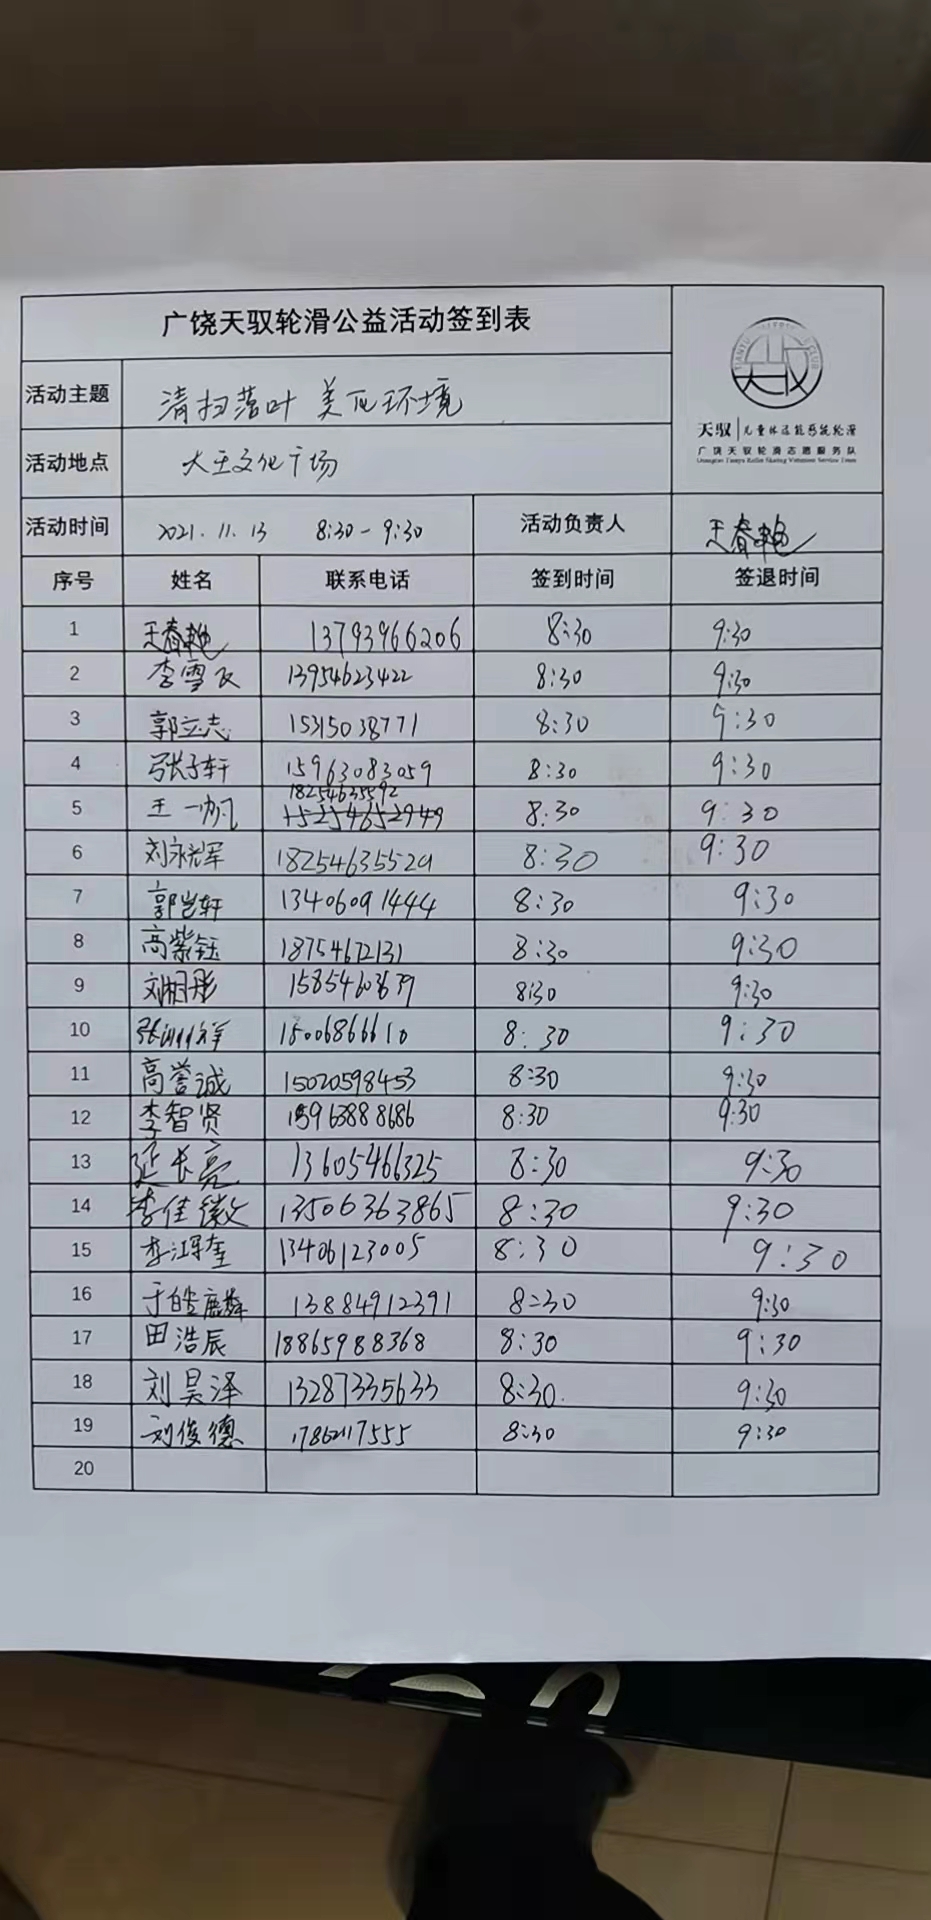 广饶天驭轮滑公益活动签到表
天驭 儿童体适能系统轮滑
广饶天驭轮滑志愿服务队
Guangrao Tianyu Roller Skating Volunteer Service Team
活动主题 清扫落叶 美化环境
活动地点 大王文化广场
活动时间 2021.11.13 8:30-9:30 活动负责人 王春艳
序号 姓名 联系电话 签到时间 签退时间
1 王春艳 13793966206 8:30 9:30
2 李雪 13954623422 8:30 9:30
3 郭立志 15315038771 8:30 9:30
4 张子轩 15963083059 8:30 9:30
5 王一帆 18254635592 8:30 9:30
6 刘永军 8:30 9:30
7 郭岂轩 13406091444 8:30 9:30
8 高紫钰 18754672131 8:30 9:30
9 15854603679 8:30 9:30
10 15006866610 8:30 9:30
11 高誉诚 15020598453 8:30 9:30
12 李智贤 15963888686 8:30 9:30
13 延长亮 13605466325 8:30 9:30
14 李佳徽 13506363865 8:30 9:30
15 13406123005 8:30 9:30
16 于皓麟 13884912391 8:30 9:30
17 田浩辰 18865988368 8:30 9:30
18 刘昊泽 13287335633 8:30 9:30
19 刘俊德 8:30 9:30
20